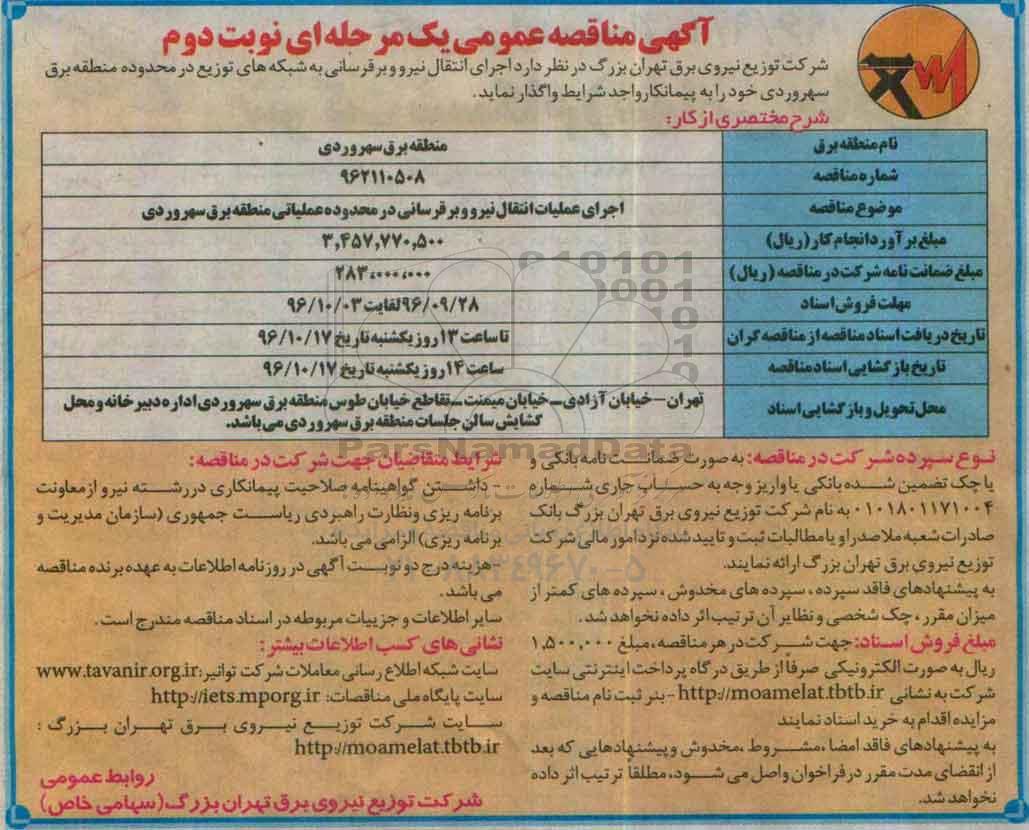 آگهی مناقصه عمومی یک مرحله ای نوبت دوم
شرکت توزیع نیروی برق تهران بزرگ در نظر دارد اجرای انتقال نیرو و برقرسانی به شبکه های توزیع در محدوده منطقه برق
سهروردی خود را به پیمانکار واجد شرایط واگذار نماید.
شرح مختصری از کار:
نام منطقه برق
منطقه برق سهروردی
شماره مناقصه
۹۶۲۱۱۰۵۰۸
موضوع مناقصه
اجرای عملیات انتقال نیرو و برقرسانی در محدوده عملیاتی منطقه برق سهروردی
مبلغ برآورد انجام کار (ریال)
۳,۴۵۷,۷۷۰,۵۰۰
مبلغ ضمانت نامه شرکت در مناقصه (ریال)
۲۸۳,۰۰۰,۰۰۰
مهلت فروش اسناد
۹۶/۰۹/۲۸ لغایت ۹۶/۱۰/۰۳
تاریخ دریافت اسناد مناقصه از مناقصه گران
تا ساعت ۱۳ روز یکشنبه تاریخ ۹۶/۱۰/۱۷
تاریخ بازگشایی اسناد مناقصه
ساعت ۱۴ روز یکشنبه تاریخ ۹۶/۱۰/۱۷
محل تحویل و بازگشایی اسناد
تهران – خیابان آزادی – خیابان میمنت – تقاطع خیابان طوس منطقه برق سهروردی اداره دبیرخانه و محل
گشایش سالن جلسات منطقه برق سهروردی می باشد.
نوع سپرده شرکت در مناقصه: به صورت ضمانت نامه بانکی و
یا چک تضمین شده بانکی یا واریز وجه به حساب جاری شماره
۰۱۰۱۸۰۱۱۷۱۰۰۴ به نام شرکت توزیع نیروی برق تهران بزرگ بانک
صادرات شعبه ملاصدرا و یا مطالبات ثبت و تایید شده نزد امور مالی شرکت
توزیع نیروی برق تهران بزرگ ارائه نمایند.
به پیشنهادهای فاقد سپرده، سپرده های مخدوش، سپرده های کمتر از
میزان مقرر، چک شخصی و نظایر آن ترتیب اثر داده نخواهد شد.
مبلغ فروش اسناد: جهت شرکت در هر مناقصه، مبلغ ۱,۵۰۰,۰۰۰
ریال به صورت الکترونیکی صرفاً از طریق درگاه پرداخت اینترنتی سایت
شرکت به نشانی http://moamelat.tbtb.ir - بنر ثبت نام مناقصه و
مزایده اقدام به خرید اسناد نمایند
به پیشنهادهای فاقد امضا، مشروط، مخدوش و پیشنهادهایی که بعد
از انقضای مدت مقرر در فراخوان واصل می شود، مطلقاً ترتیب اثر داده
نخواهد شد.
شرایط متقاضیان جهت شرکت در مناقصه:
- داشتن گواهینامه صلاحیت پیمانکاری در رشته نیرو از معاونت
برنامه ریزی و نظارت راهبردی ریاست جمهوری (سازمان مدیریت و
برنامه ریزی) الزامی می باشد.
- هزینه درج دو نوبت آگهی در روزنامه اطلاعات به عهده برنده مناقصه
می باشد.
سایر اطلاعات و جزییات مربوطه در اسناد مناقصه مندرج است.
نشانی های کسب اطلاعات بیشتر:
سایت شبکه اطلاع رسانی معاملات شرکت توانیر: www.tavanir.org.ir
سایت پایگاه ملی مناقصات: http://iets.mporg.ir
سایت شرکت توزیع نیروی برق تهران بزرگ:
http://moamelat.tbtb.ir
روابط عمومی
شرکت توزیع نیروی برق تهران بزرگ (سهامی خاص)
ParsNamadData